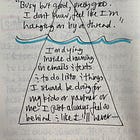 "Busy but good, pretty good.
I don't know, feel like I'm
hanging on by a thread."
I'm dying
inside drowning
in emails & texts
& to do lists & things
I should be doing for
my kids or partner or
me & I get so far
behind & like I'll never